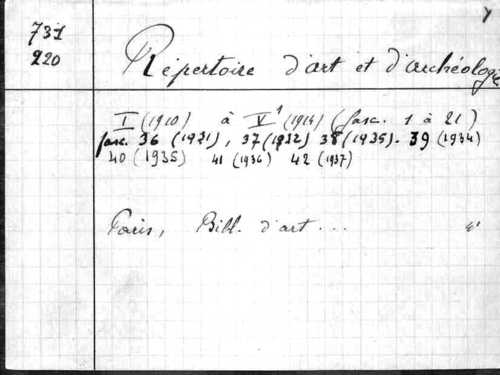 731
220
Répertoire d'art et d'archéologie
I (1910) à V¹ (1914) (fasc. 1 à 21)
fasc. 36 (1931), 37 (1932) 38 (1935). 39 (1934)
40 (1935) 41 (1936) 42 (1937)
Paris, Bibl. d'art...